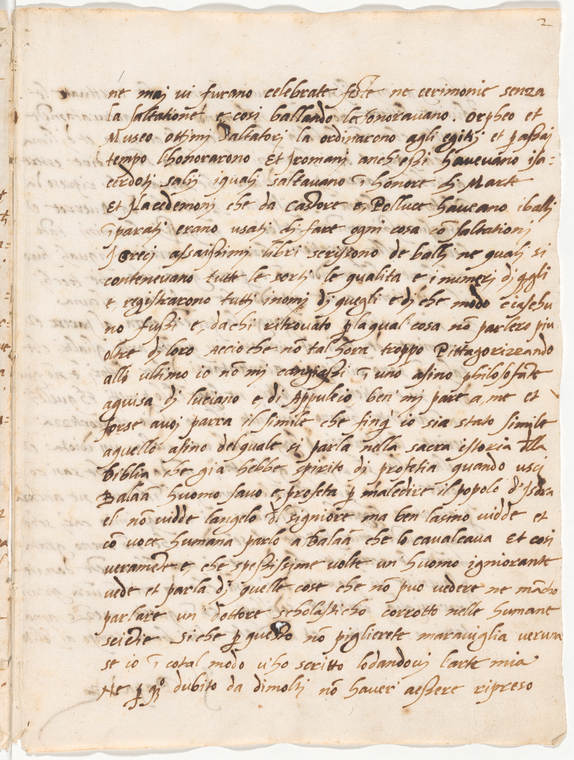 2
ne maj vi furano celebrate feste ne cerimonie senza
la saltatione e cosi ballando le honoravano. Orpheo et
Museo ottimi saltatorj la ordinarono agli egittij et p assaj
tempo lhonorarono Et jromanj anch essi havevano isa=
cerdotj salij iqualj saltavano ĩ honore dj Marte
Et jlacedemonj che da Castore e Polluce haveano iballj
ĩparatj erano usati di fare ogni cosa cõ saltationj
J Grecj assaissimi libri scrissono de ballj ne qualj si
contenevano tutte le sorti le qualita e i numeri di q̃gli
e registrarono tutti inomj dj quegli e dj che modo ciaschu
no fussi e dachi ritrovato p laqual cosa nõ parlero piu
oltre dj loro Accio che nõ tal hora troppo Pittagorizzando
allo ultimo io nõ mi cangiassi ĩ uno asino philosofante
aguisa dj luciano e dj Appuleio ben mj pare a me et
forse avoj parra il simile che fing io sia stato simile
aquello asino delquale si parla nella sacra istoria della
biblia che gia hebbe spirito dj profetia quando usci
Balaã huomo savo e profeta p maledire il popolo d'Isdra
el nõ vidde langelo del signiore ma ben lasino vidde et
cõ voce humana parlo a Balaã che lo cavalcava Et cosi
veramẽte e che spessissime volte un huomo igniorante
vede et parla dj quelle cose che nõ puo vedere ne mãcho
parlare un dottore scholastico corrotto nelle humane
sciẽtie siche p questo nõ piglierete maraviglia veruna
se io ĩ cotal modo vi ho scritto lodandovj larte mia
Ne p q̃o dubito da dimoltj nõ haver aessere ripreso